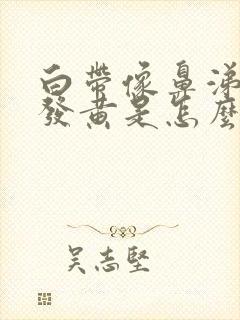 白帶像鼻涕
發黃是怎麼
吴志堅